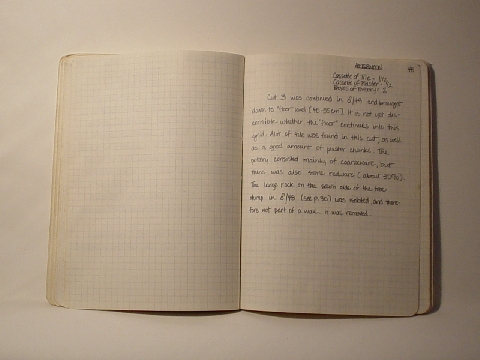 48
Cassette of tile = 1 1/2
Cassette of plaster = 1/2
Boxes of Pottery = 2
Cut 3 was continued in 8/48 and brought
down to "floor" level (ie. 35cm). It is not yet dis-
cernible whether the "floor" continues into this
grid. A lot of tile was found in this cut, as well
as a good amount of plaster chunks. The
pottery consisted mainly of coarseware, but
there was also some redware (about 30%).
The large rock on the south side of the tile
dump in 8/48 (see p. 90) was isolated, and there-
fore not part of a wall. It was removed.